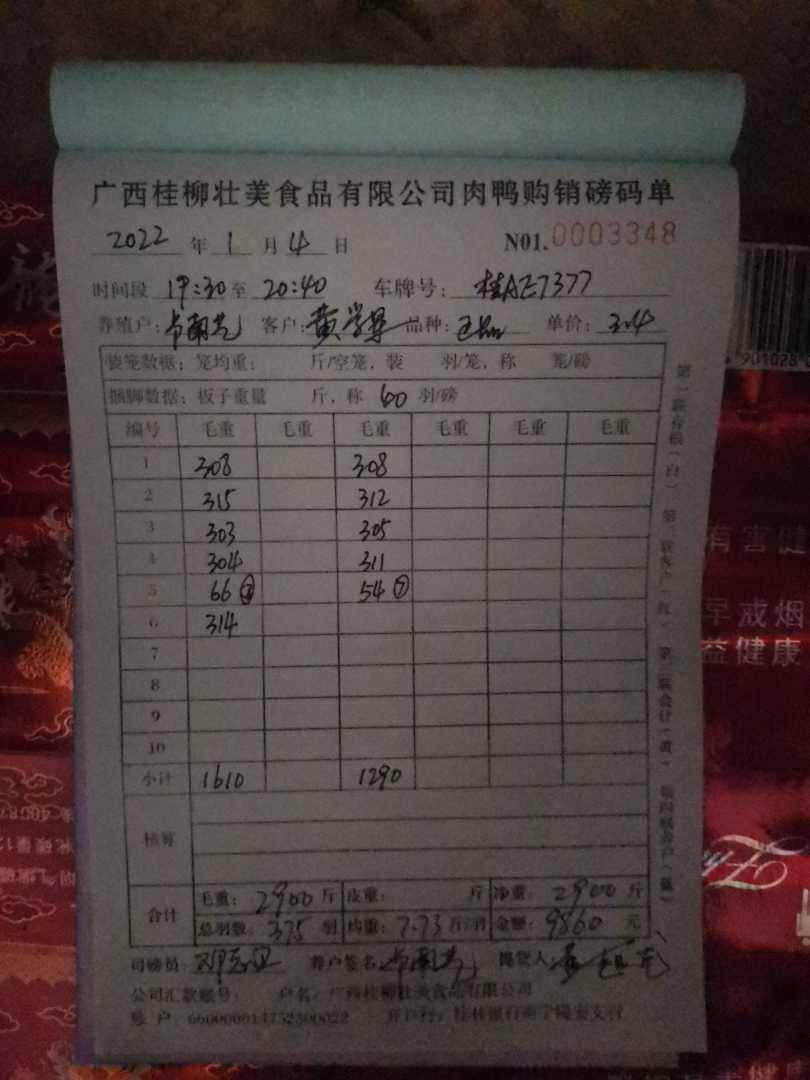 广西桂柳壮美食品有限公司肉鸭购销磅码单
2022 年 1 月 4 日 N01.0003348
时间段 19:30 至 20:40 车牌号: 桂AE7377
养殖户: 客户: 品种: 单价: 3.4
装笼数据: 笼均重: 斤/空笼, 装 羽/笼, 称 笼/磅
捆脚数据: 板子重量 斤, 称 60 羽/磅
编号 毛重 毛重 毛重 毛重 毛重 毛重
1 308 308
2 315 312
3 303 305
4 304 311
5 66 54 ⑦
6 314
7
8
9
10
小计 1610 1290
核算
合计 毛重: 2900 斤 皮重: 斤 净重: 2900 斤
总羽数: 375 羽 均重: 7.73 斤/羽 金额: 9860 元
司磅员: 养户签名: 提货人:
公司汇款账号: 户名: 广西桂柳壮美食品有限公司
账 户: 开户行: 桂林银行南宁隆安支行
第一联存根(白) 第二联客户(红) 第三联会计(黄)
有害健
早戒烟
益健康
901028